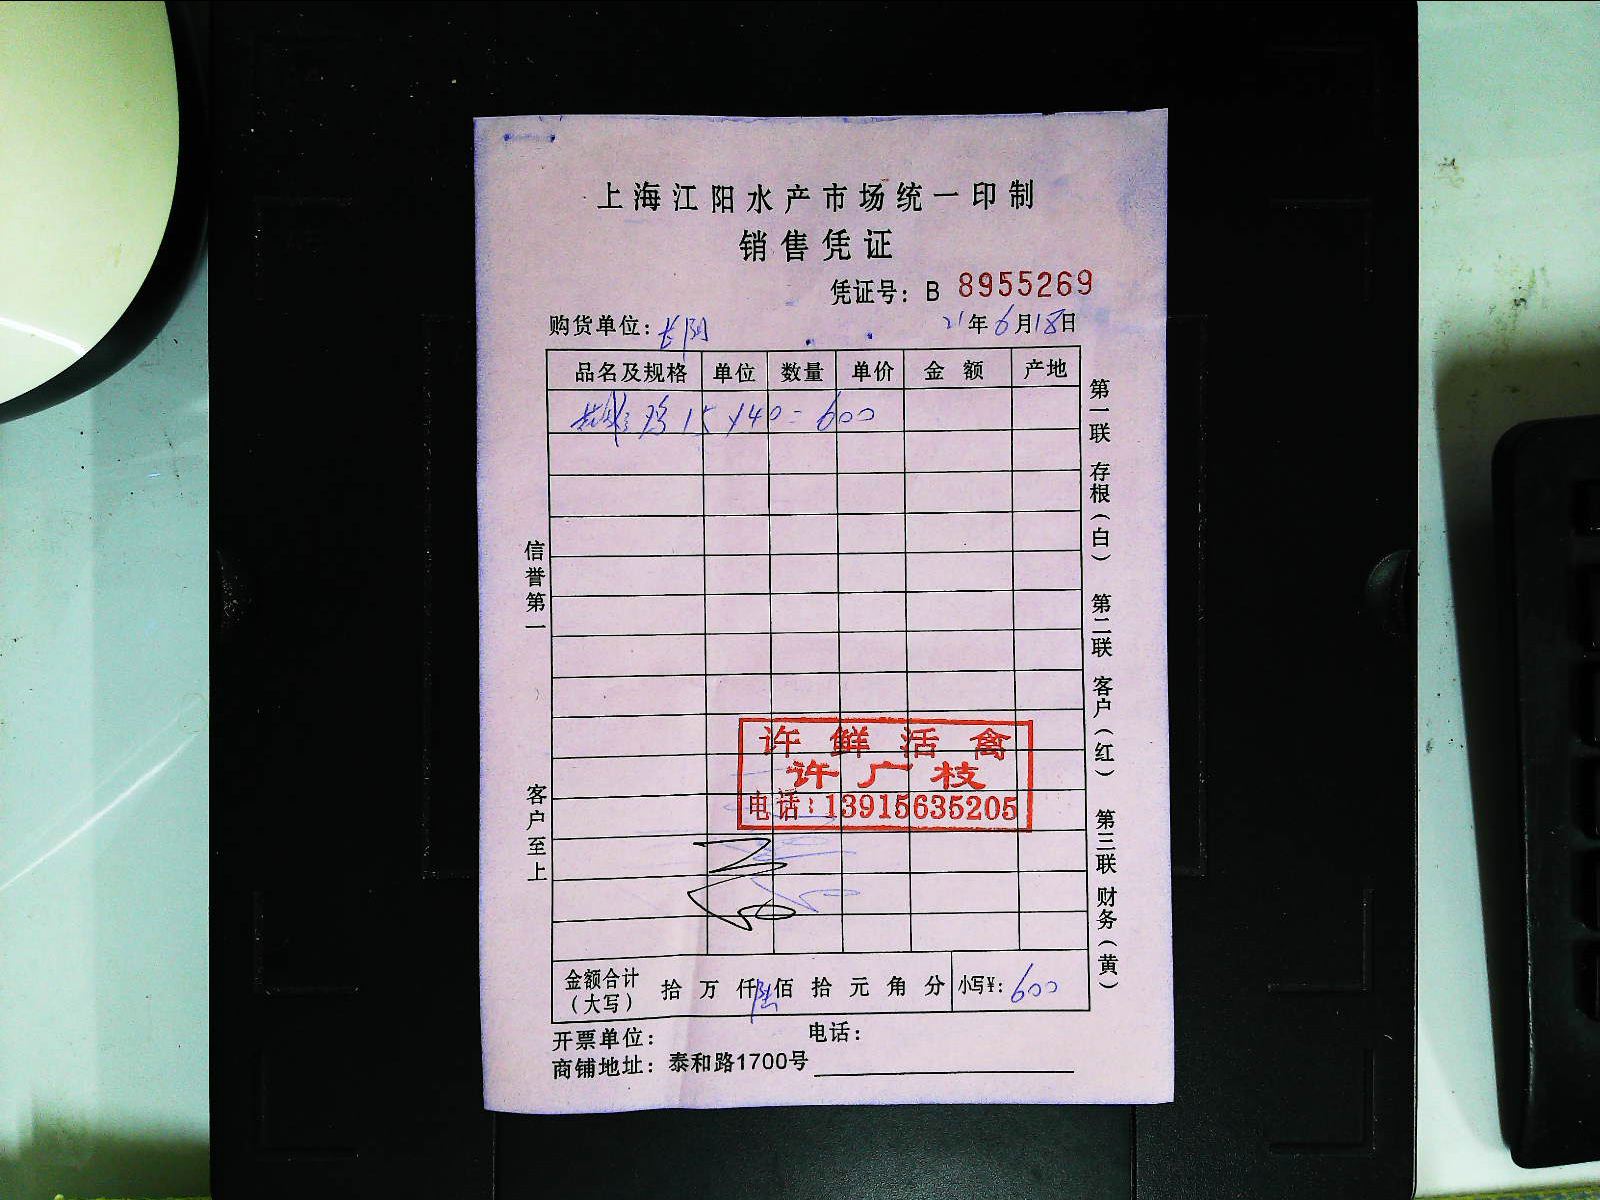 上海江阳水产市场统一印制
销售凭证
凭证号：B 8955269
购货单位：长阴 21年6月18日
品名及规格 单位 数量 单价 金额 产地
鸡 15×40=600
第一联 存根（白） 第二联 客户（红） 第三联 财务（黄）
信誉第一 客户至上
许鲜活禽
许广枝
电话：13915635205
金额合计（大写） 拾 万 仟 陆佰 拾 元 角 分 小写¥：600
开票单位： 电话：
商铺地址：泰和路1700号